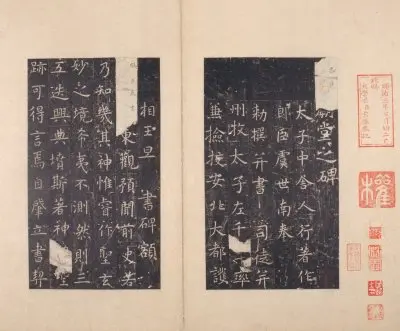 廟堂之碑
太子中舍人行著作
郎臣虞世南奉
勅撰并書 司徒并
州牧太子左千 率
兼撿挍安北大都護
相王旦 書碑額
東觀預聞前史若
乃知幾其神惟睿作聖玄
妙之境希夷不測然則三
五迭興典墳斯著神
跡可得言焉自肇立書契